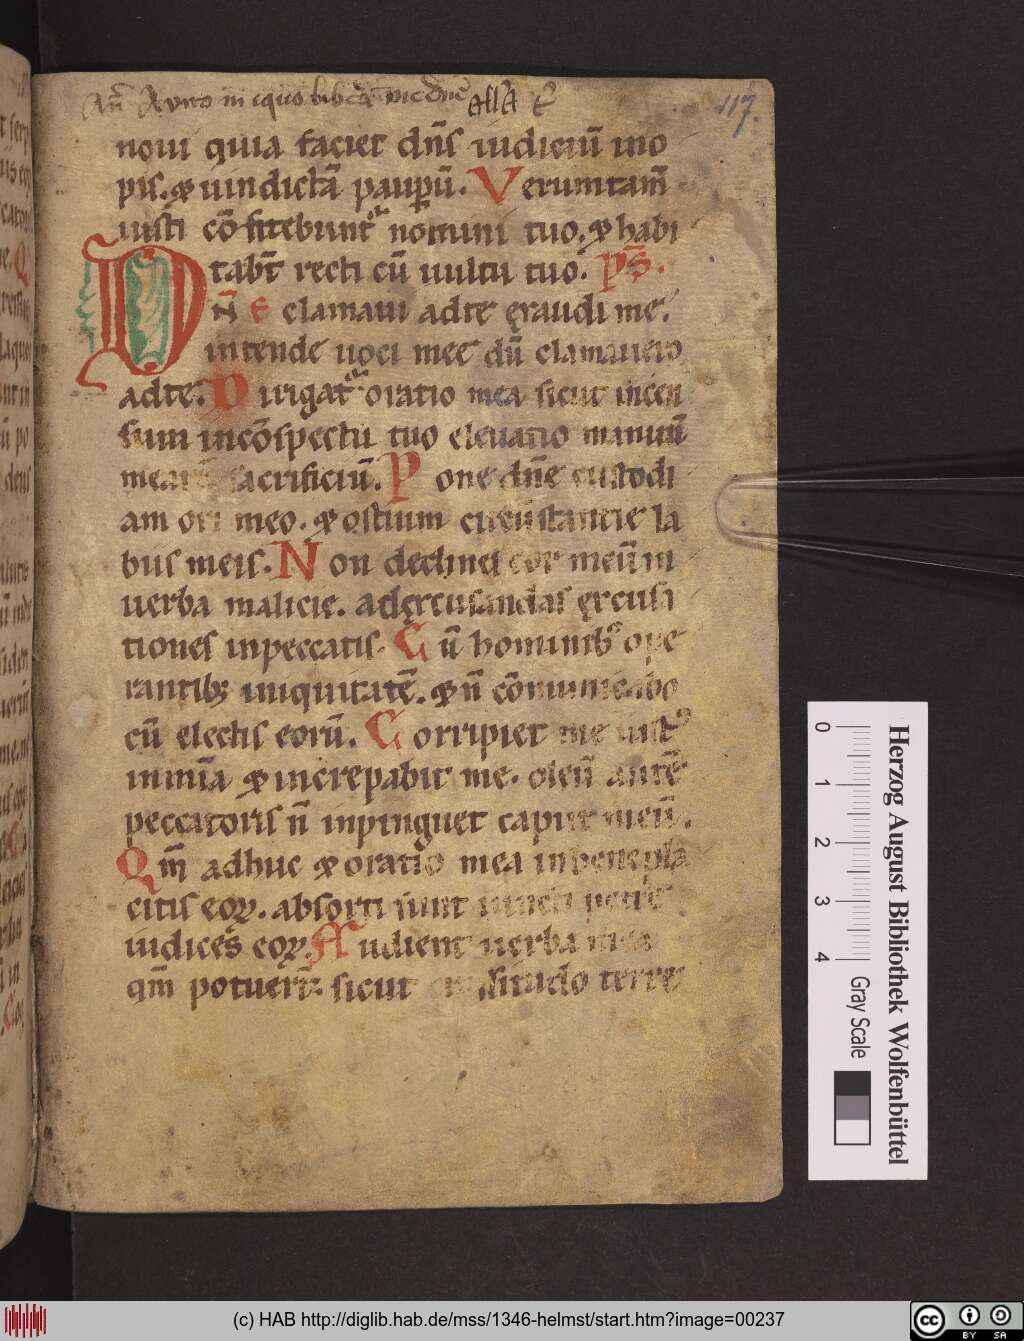 117.
noui quia faciet dñs iudiciū ino
pis. ⁊ uindictā pauꝑū. Verumtam̄
iusti cōfitebunt᷑ nomini tuo. ⁊ habi
tabt̄ recti cū uultu tuo. ps̄.
Dn̄e clamaui adte ęxaudi me.
intende uoci mee dū clamauero
adte. Dirigat᷑ oratio mea sicut incen
sum incōspectu tuo eleuatio manuū
mearū sacrificiū. Pone dn̄e custodi
am ori meo. ⁊ ostium circūstantie la
biis meis. Non declines cor meū in
uerba malicie. adęxcusandas ęxcusa
tiones inpeccatis. Cū hominibꝰ ope
rantibꝫ iniquitatē. ⁊ n̄ cōmunicabo
cū electis eorū. Corripiet me iustꝰ
inmīa ⁊ increpabit me. oleū autē
peccatoris n̄ inpinguet caput meū.
Qm̄ adhuc ⁊ oratio mea inbenepla
citis eoꝝ. absorti sunt iuncti petre
iudices eoꝝ. Audient uerba mea
qm̄ potuert̄. sicut crassitudo terre
0 1 2 3 4
Gray Scale
Herzog August Bibliothek Wolfenbüttel
(c) HAB http://diglib.hab.de/mss/1346-helmst/start.htm?image=00237
cc BY SA